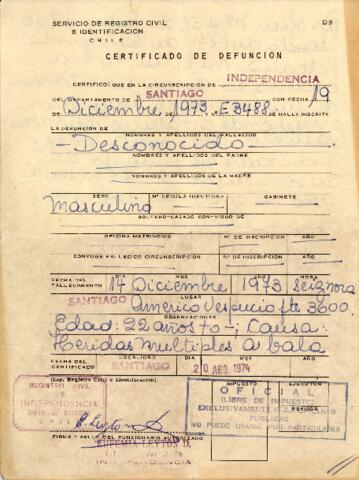 SERVICIO DE REGISTRO CIVIL D5
E IDENTIFICACION
CHILE
CERTIFICADO DE DEFUNCION
CERTIFICO: QUE EN LA CIRCUNSCRIPCION DE INDEPENDENCIA
DEL DEPARTAMENTO DE SANTIAGO CON FECHA 19
DE Diciembre DE 1973 Y Nº E3488 SE HALLA INSCRITA
LA DEFUNCION DE
NOMBRES Y APELLIDOS DEL FALLECIDO
- Desconocido -
NOMBRES Y APELLIDOS DEL PADRE
NOMBRES Y APELLIDOS DE LA MADRE
SEXO Nº CEDULA IDENTIDAD GABINETE
Masculino
SOLTERO-CASADO CON-VIUDO DE
OFICINA MATRIMONIO Nº DE INSCRIPCION AÑO
CONYUGE FALLECIDO CIRCUNSCRIPCION Nº DE INSCRIPCION AÑO
FECHA DEL FALLECIMIENTO DIA MES AÑO HORA
17 Diciembre 1973 Se ignora
LUGAR
SANTIAGO Américo Vespucio fte 3600
OBSERVACIONES
Edad: 22 años +o-; Causa:
Heridas multiples a bala
FECHA DEL CERTIFICADO LOCALIDAD DIA MES AÑO
SANTIAGO 20 AGO. 1974
(Imp. Registro Civil e Identificación) IMPUESTO
REGISTRO CIVIL
DE
INDEPENDENCIA
CHILE
OFICIAL
(LIBRE DE IMPUESTO)
EXCLUSIVAMENTE
PUBLICAS
NO PUEDE USARSE POR PARTICULARES
E. Leyton D.
FIRMA Y SELLO DEL FUNCIONARIO AUTORIZADO
EUGENIA LEYTON D.
INDEPENDENCIA